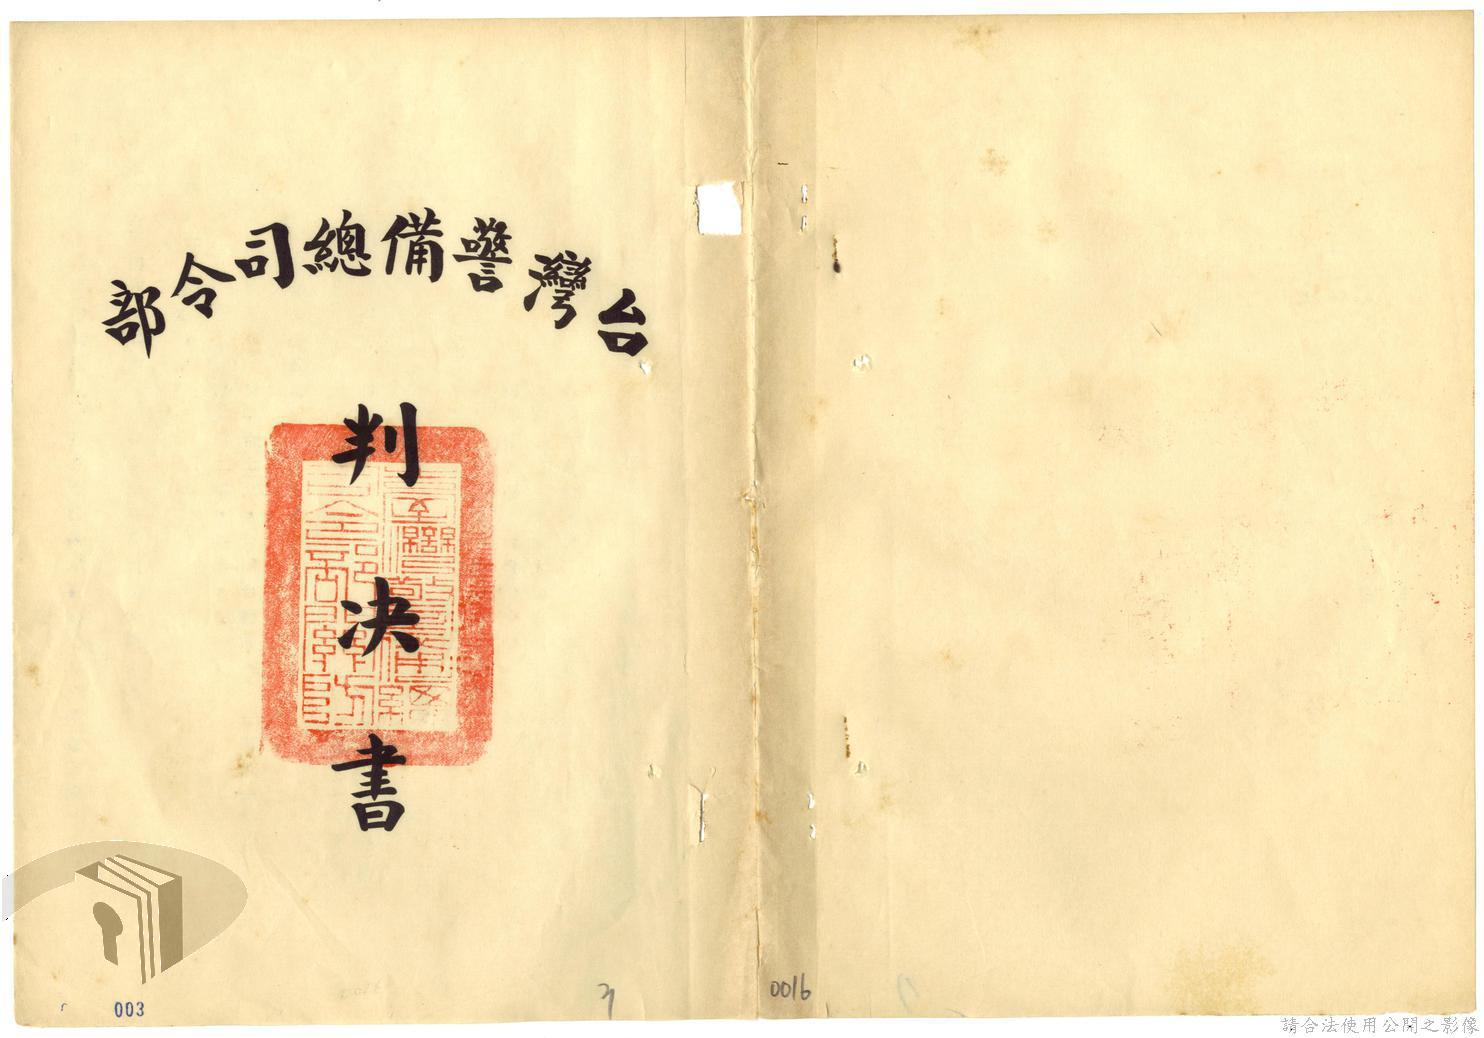 台灣警備總司令部
判決書
003
0016
請合法使用公開之影像